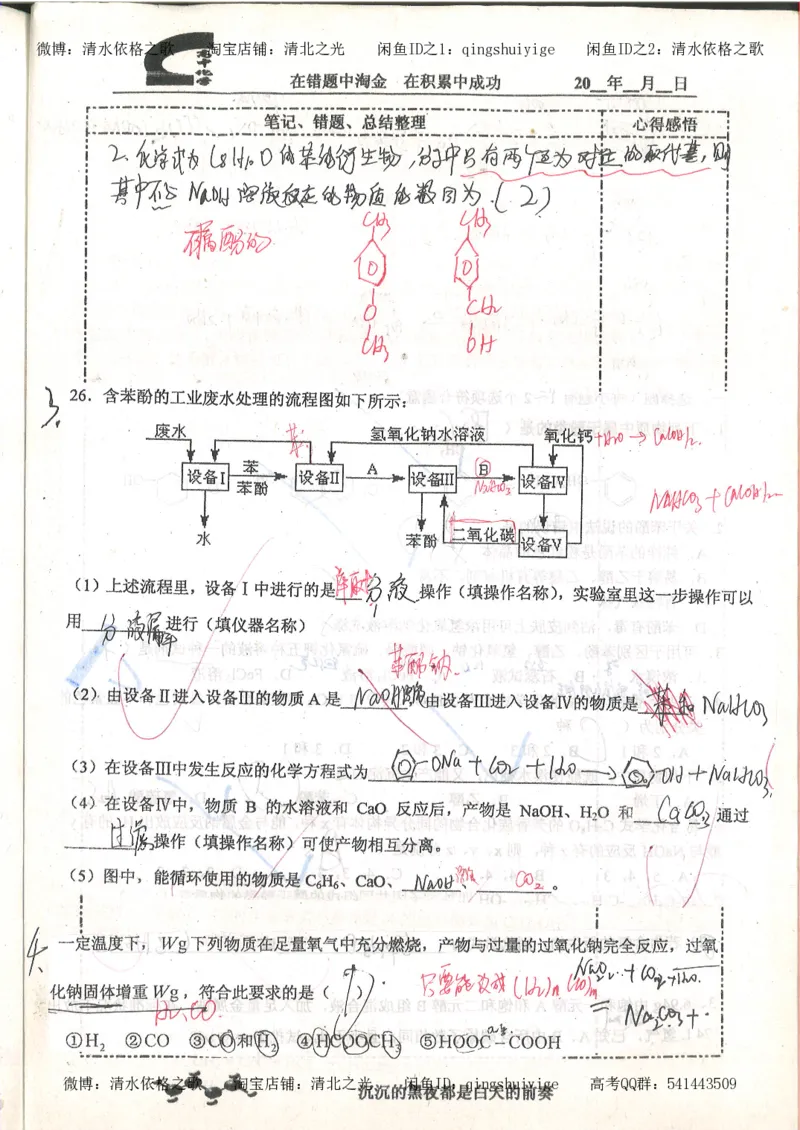 微博：清水依格之歌 淘宝店铺：清北之光 闲鱼ID之1：qingshuiyige 闲鱼ID之2：清水依格之歌
在错题中淘金 在积累中成功 20__年__月__日
笔记、错题、总结整理 心得感悟
2. 化学式为C8H10O的苯的衍生物，分子中只有两个互为对位的取代基，则
其中不与NaOH溶液反应的物质的数目为（2）
CH3 CH3
O CH2
CH3 OH
3.
26．含苯酚的工业废水处理的流程图如下所示：
废水 苯 氢氧化钠水溶液 氧化钙 +H2O → Ca(OH)2.
设备Ⅰ 苯 苯酚 设备Ⅱ A 设备Ⅲ B NaHCO3 设备Ⅳ
NaHCO3 + Ca(OH)2
水 苯酚 二氧化碳 设备Ⅴ
（1）上述流程里，设备Ⅰ中进行的是 分液 操作（填操作名称），实验室里这一步操作可以
用 分液漏斗 进行（填仪器名称）
苯酚钠
（2）由设备Ⅱ进入设备Ⅲ的物质A是 由设备Ⅲ进入设备Ⅳ的物质是 NaHCO3
（3）在设备Ⅲ中发生反应的化学方程式为 -ONa + CO2 + H2O → -OH + NaHCO3
（4）在设备Ⅳ中，物质 B 的水溶液和 CaO 反应后，产物是 NaOH、H2O 和 CaCO3 通过
过滤 操作（填操作名称）可使产物相互分离。
（5）图中，能循环使用的物质是C6H6、CaO、 NaOH 溶液、 CO2 。
一定温度下，Wg下列物质在足量氧气中充分燃烧，产物与过量的过氧化钠完全反应，过氧
化钠固体增重Wg，符合此要求的是（ ）
只要能改成(H2)n (CO)m
H2、CO
Na2O2 + CO2
= Na2CO3 +
①H2 ②CO ③CO和H2 ④HCOOCH3 ⑤HOOC－COOH
微博：清水依格之歌 淘宝店铺：清北之光 闲鱼ID：qingshuiyige 高考QQ群：541443509
沉沉的黑夜都是白天的前奏